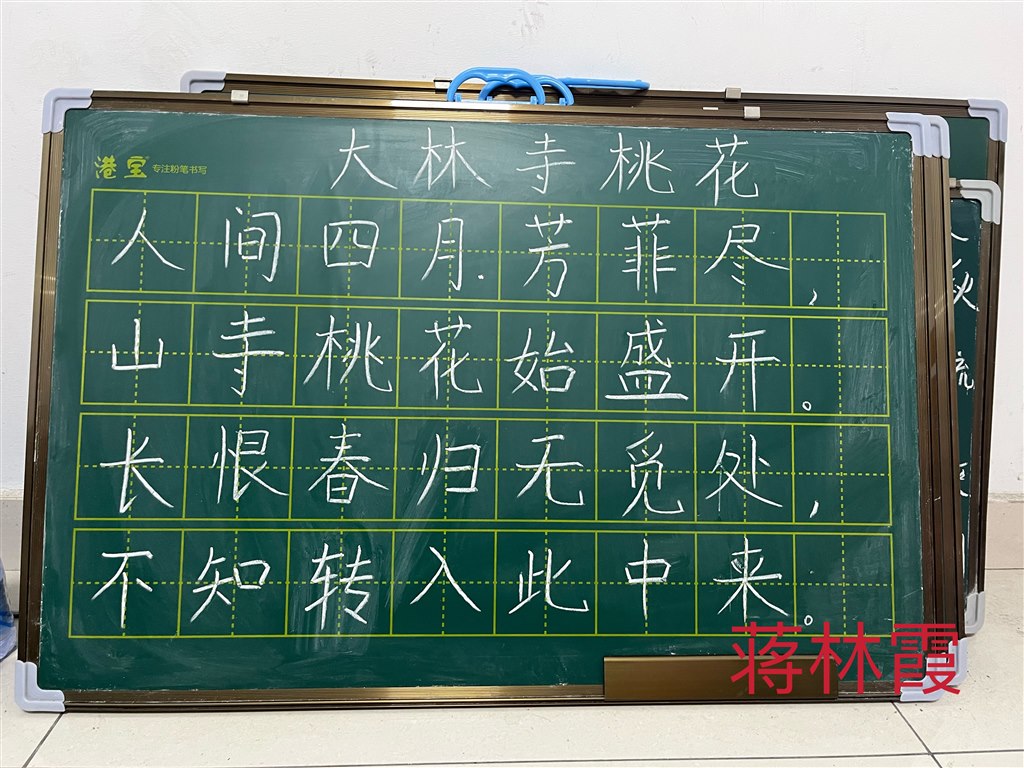 港宝 专注粉笔书写
大林寺桃花
人间四月芳菲尽，
山寺桃花始盛开。
长恨春归无觅处，
不知转入此中来。
蒋林霞